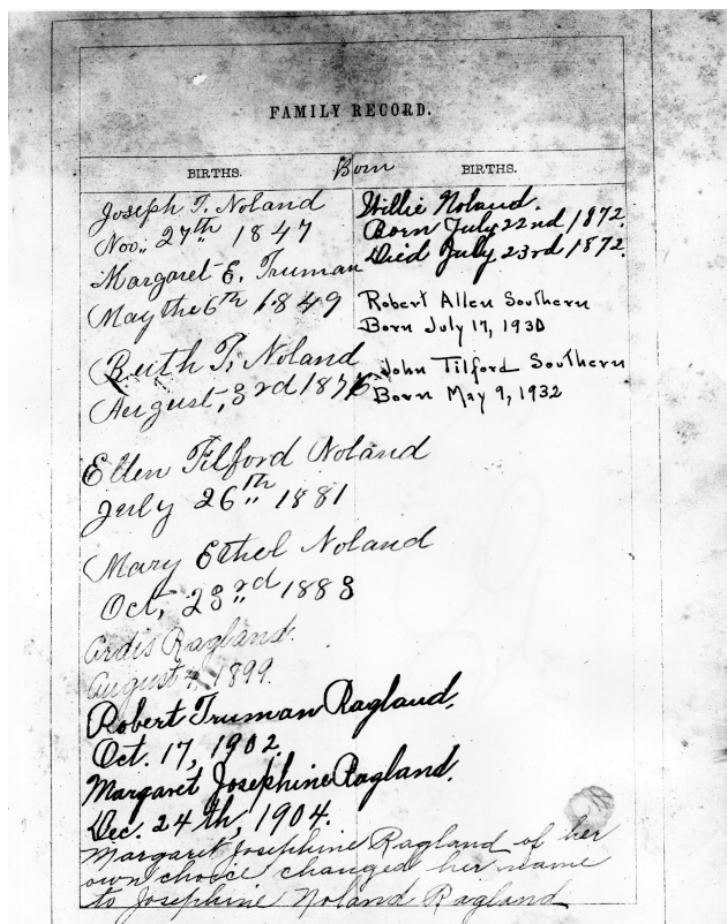 FAMILY RECORD.
Born
BIRTHS.
Joseph T. Noland
Nov. 27th 1847
Margaret E. Truman
May the 6th 1849
Ruth T. Noland
August, 3rd 1875
Ellen Tilford Noland
July 26th 1881
Mary Ethel Noland
Oct, 23rd 1883
Ardis Ragland.
August 4, 1899.
Robert Truman Ragland.
Oct. 17, 1902.
Margaret Josephine Ragland.
Dec. 24th, 1904.
Margaret Josephine Ragland of her
own choice changed her name
to Josephine Noland Ragland
BIRTHS.
Willie Noland.
Born July 22nd 1872.
Died July 23rd 1872.
Robert Allen Southern
Born July 17, 1930
John Tilford Southern
Born May 9, 1932